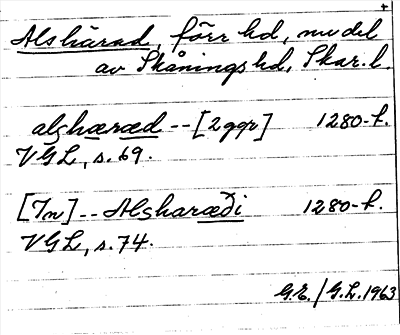 Alshärad, förr hd, nu del
av Skånings hd, Skar. l.
alghæræd -- [2 ggr] 1280-t.
VGL, s. 69.
[In] -- Alsharæði 1280-t.
VGL, s. 74.
G.E. / G.L. 1963